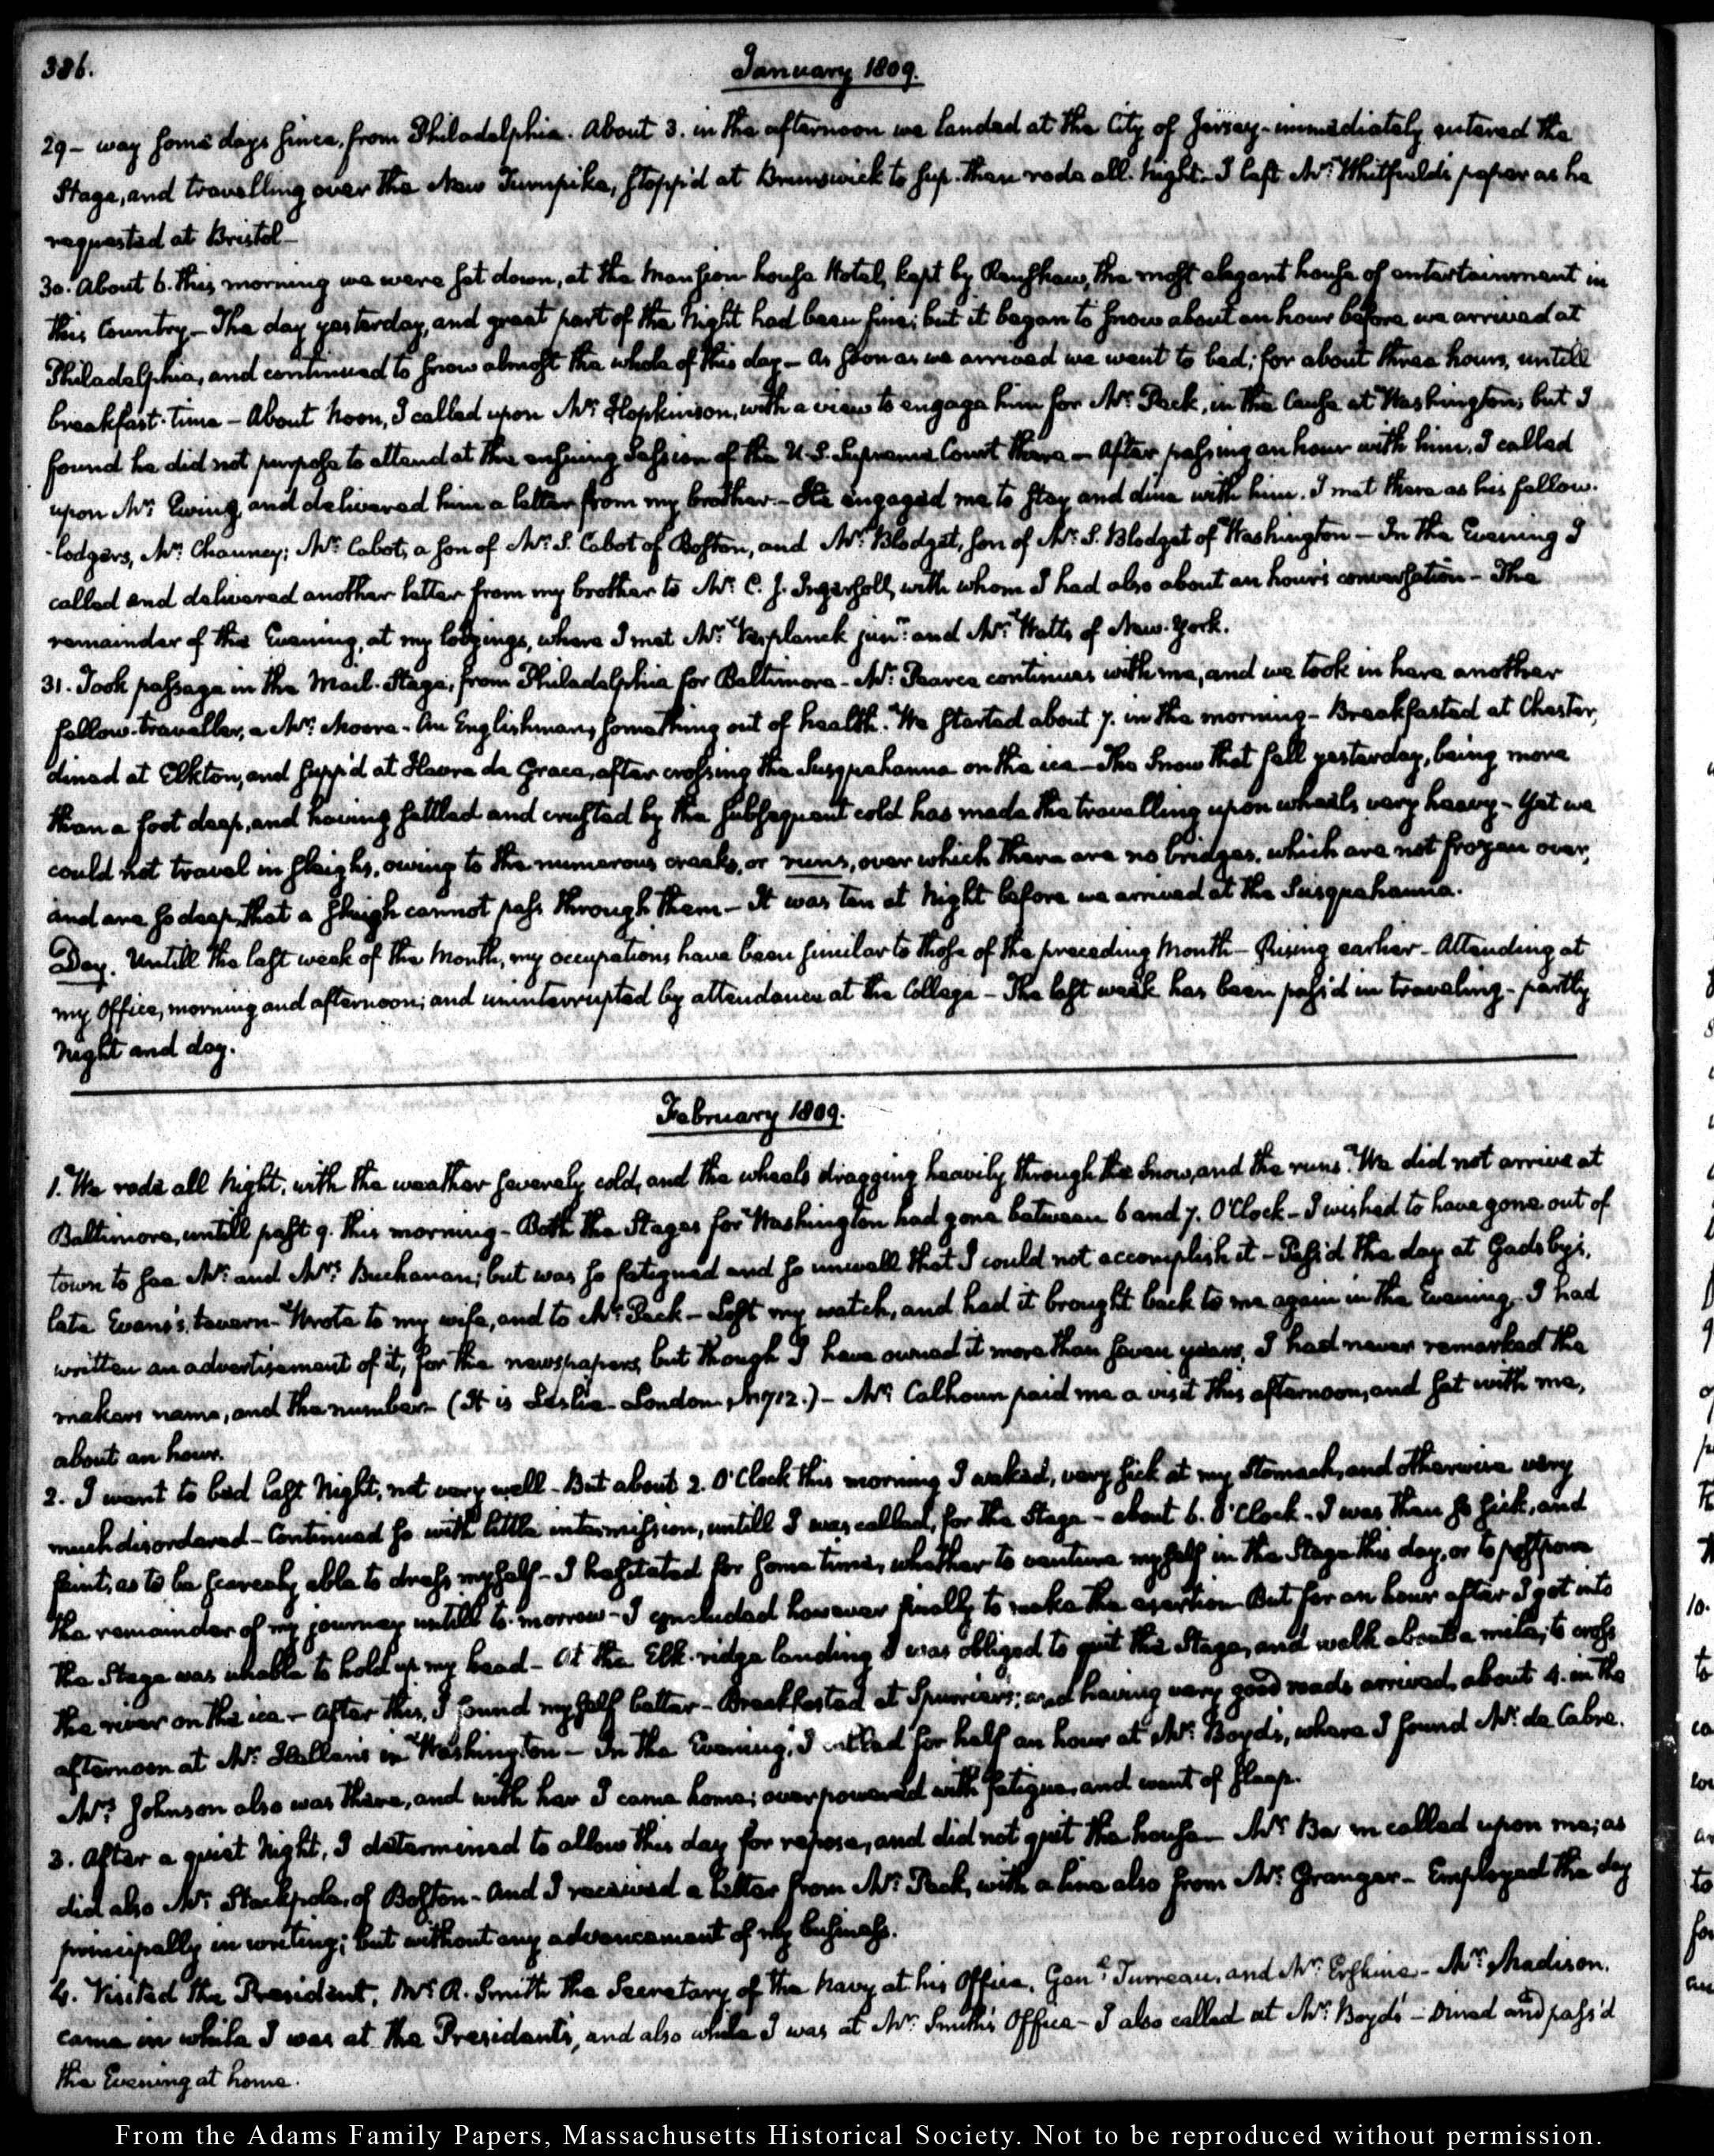 386.
January 1809.
29 - way some days since, from Philadelphia. About 3. in the afternoon we landed at the City of Jersey - immediately entered the
Stage, and travelling over the New Turnpike, stopp'd at Brunswick to sup. then rode all night - I left Mr. Whitfield's paper as he
requested at Bristol -
30. About 6. this morning we were set down, at the Mansion house Hotel, kept by Renshaw, the most elegant house of entertainment in
this Country - The day yesterday, and great part of the Night had been fine; but it began to snow about an hour before we arrived at
Philadelphia, and continued to snow almost the whole of this day - As soon as we arrived we went to bed; for about three hours, untill
breakfast-time - About Noon, I called upon Mr. Hopkinson, with a view to engage him for Mr. Peck, in the Cause at Washington; but I
found he did not purpose to attend at the ensuing Session of the U.S. Supreme Court there - After passing an hour with him, I called
upon Mr. Ewing, and delivered him a letter from my brother - He engaged me to stay and dine with him. I met there as his fellow-
-lodgers, Mr. Chauncy; Mr. Cabot, a son of Mr. S. Cabot of Boston, and Mr. Blodget, son of Mr. S. Blodget of Washington - In the Evening I
called and delivered another letter from my brother to Mr. C. J. Ingersoll, with whom I had also about an hour's conversation - The
remainder of the Evening, at my lodgings, where I met Mr. Verplanck junr. and Mr. Watts of New-York.
31. Took passage in the Mail-Stage, from Philadelphia for Baltimore - Mr. Pearce continues with me, and we took in here another
fellow-traveller, a Mr. Moore - An Englishman, something out of health. We started about 7. in the morning - Breakfasted at Chester,
dined at Elkton, and supp'd at Havre de Grace, after crossing the Susquehanna on the ice - The Snow that fell yesterday, being more
than a foot deep, and having settled and crusted by the subsequent cold has made the travelling upon wheels very heavy - Yet we
could not travel in sleighs, owing to the numerous creeks, or runs, over which there are no bridges, which are not frozen over,
and are so deep that a sleigh cannot pass through them - It was ten at Night before we arrived at the Susquehanna.
Day. Untill the last week of the Month, my occupations have been similar to those of the preceding Month - Rising earlier - Attending at
my Office, morning and afternoon; and uninterrupted by attendance at the College - The last week has been pass'd in traveling - partly
Night and day.
February 1809.
1. We rode all Night, with the weather severely cold, and the wheels dragging heavily through the Snow, and the runs. We did not arrive at
Baltimore, untill past 9. this morning - Both the Stages for Washington had gone between 6 and 7. O'Clock - I wished to have gone out of
town to see Mr. and Mrs. Buchanan; but was so fatigued and so unwell that I could not accomplish it - Pass'd the day at Gadsby's,
late Evans's, tavern - Wrote to my wife, and to Mr. Peck - Lost my watch, and had it brought back to me again in the Evening. I had
written an advertisement of it, for the newspapers, but though I have owned it more than seven years, I had never remarked the
makers name, and the number - (It is Leslie - London, 712.) - Mr. Calhoun paid me a visit this afternoon, and sat with me,
about an hour.
2. I went to bed last Night, not very well - But about 2. O'Clock this morning I waked, very sick at my Stomach, and otherwise very
much disordered - Continued so with little intermission, untill I was called, for the Stage - about 6. O'Clock - I was then so sick, and
faint, as to be scarcely able to dress myself - I hesitated for some time, whether to venture myself in the Stage this day, or to postpone
the remainder of my journey untill to-morrow - I concluded however finally to make the exertion - But for an hour after I got into
the Stage was unable to hold up my head - At the Elk-ridge landing I was obliged to quit the Stage, and walk about a mile, to cross
the river on the ice - After this, I found myself better - Breakfasted at Spurriers; and having very good roads arrived about 4. in the
afternoon at Mr. Hellen's in Washington - In the Evening, I called for half an hour at Mr. Boyd's, where I found Mr. de Cabre.
Mrs. Johnson also was there, and with her I came home; overpowered with fatigue, and want of sleep.
3. After a quiet Night, I determined to allow this day for repose, and did not quit the house - Mr. called upon me; as
did also Mr. Stackpole, of Boston - And I received a letter from Mr. Peck, with a line also from Mr. Granger - Employed the day
principally in writing; but without any advancement of my business.
4. Visited the President, Mr. R. Smith the Secretary of the Navy at his Office, Genl. Turreau, and Mr. Erskine - Mr. Madison,
came in while I was at the President's, and also while I was at Mr. Smith's Office - I also called at Mr. Boyd's - Dined and pass'd
the Evening at home.
From the Adams Family Papers, Massachusetts Historical Society. Not to be reproduced without permission.